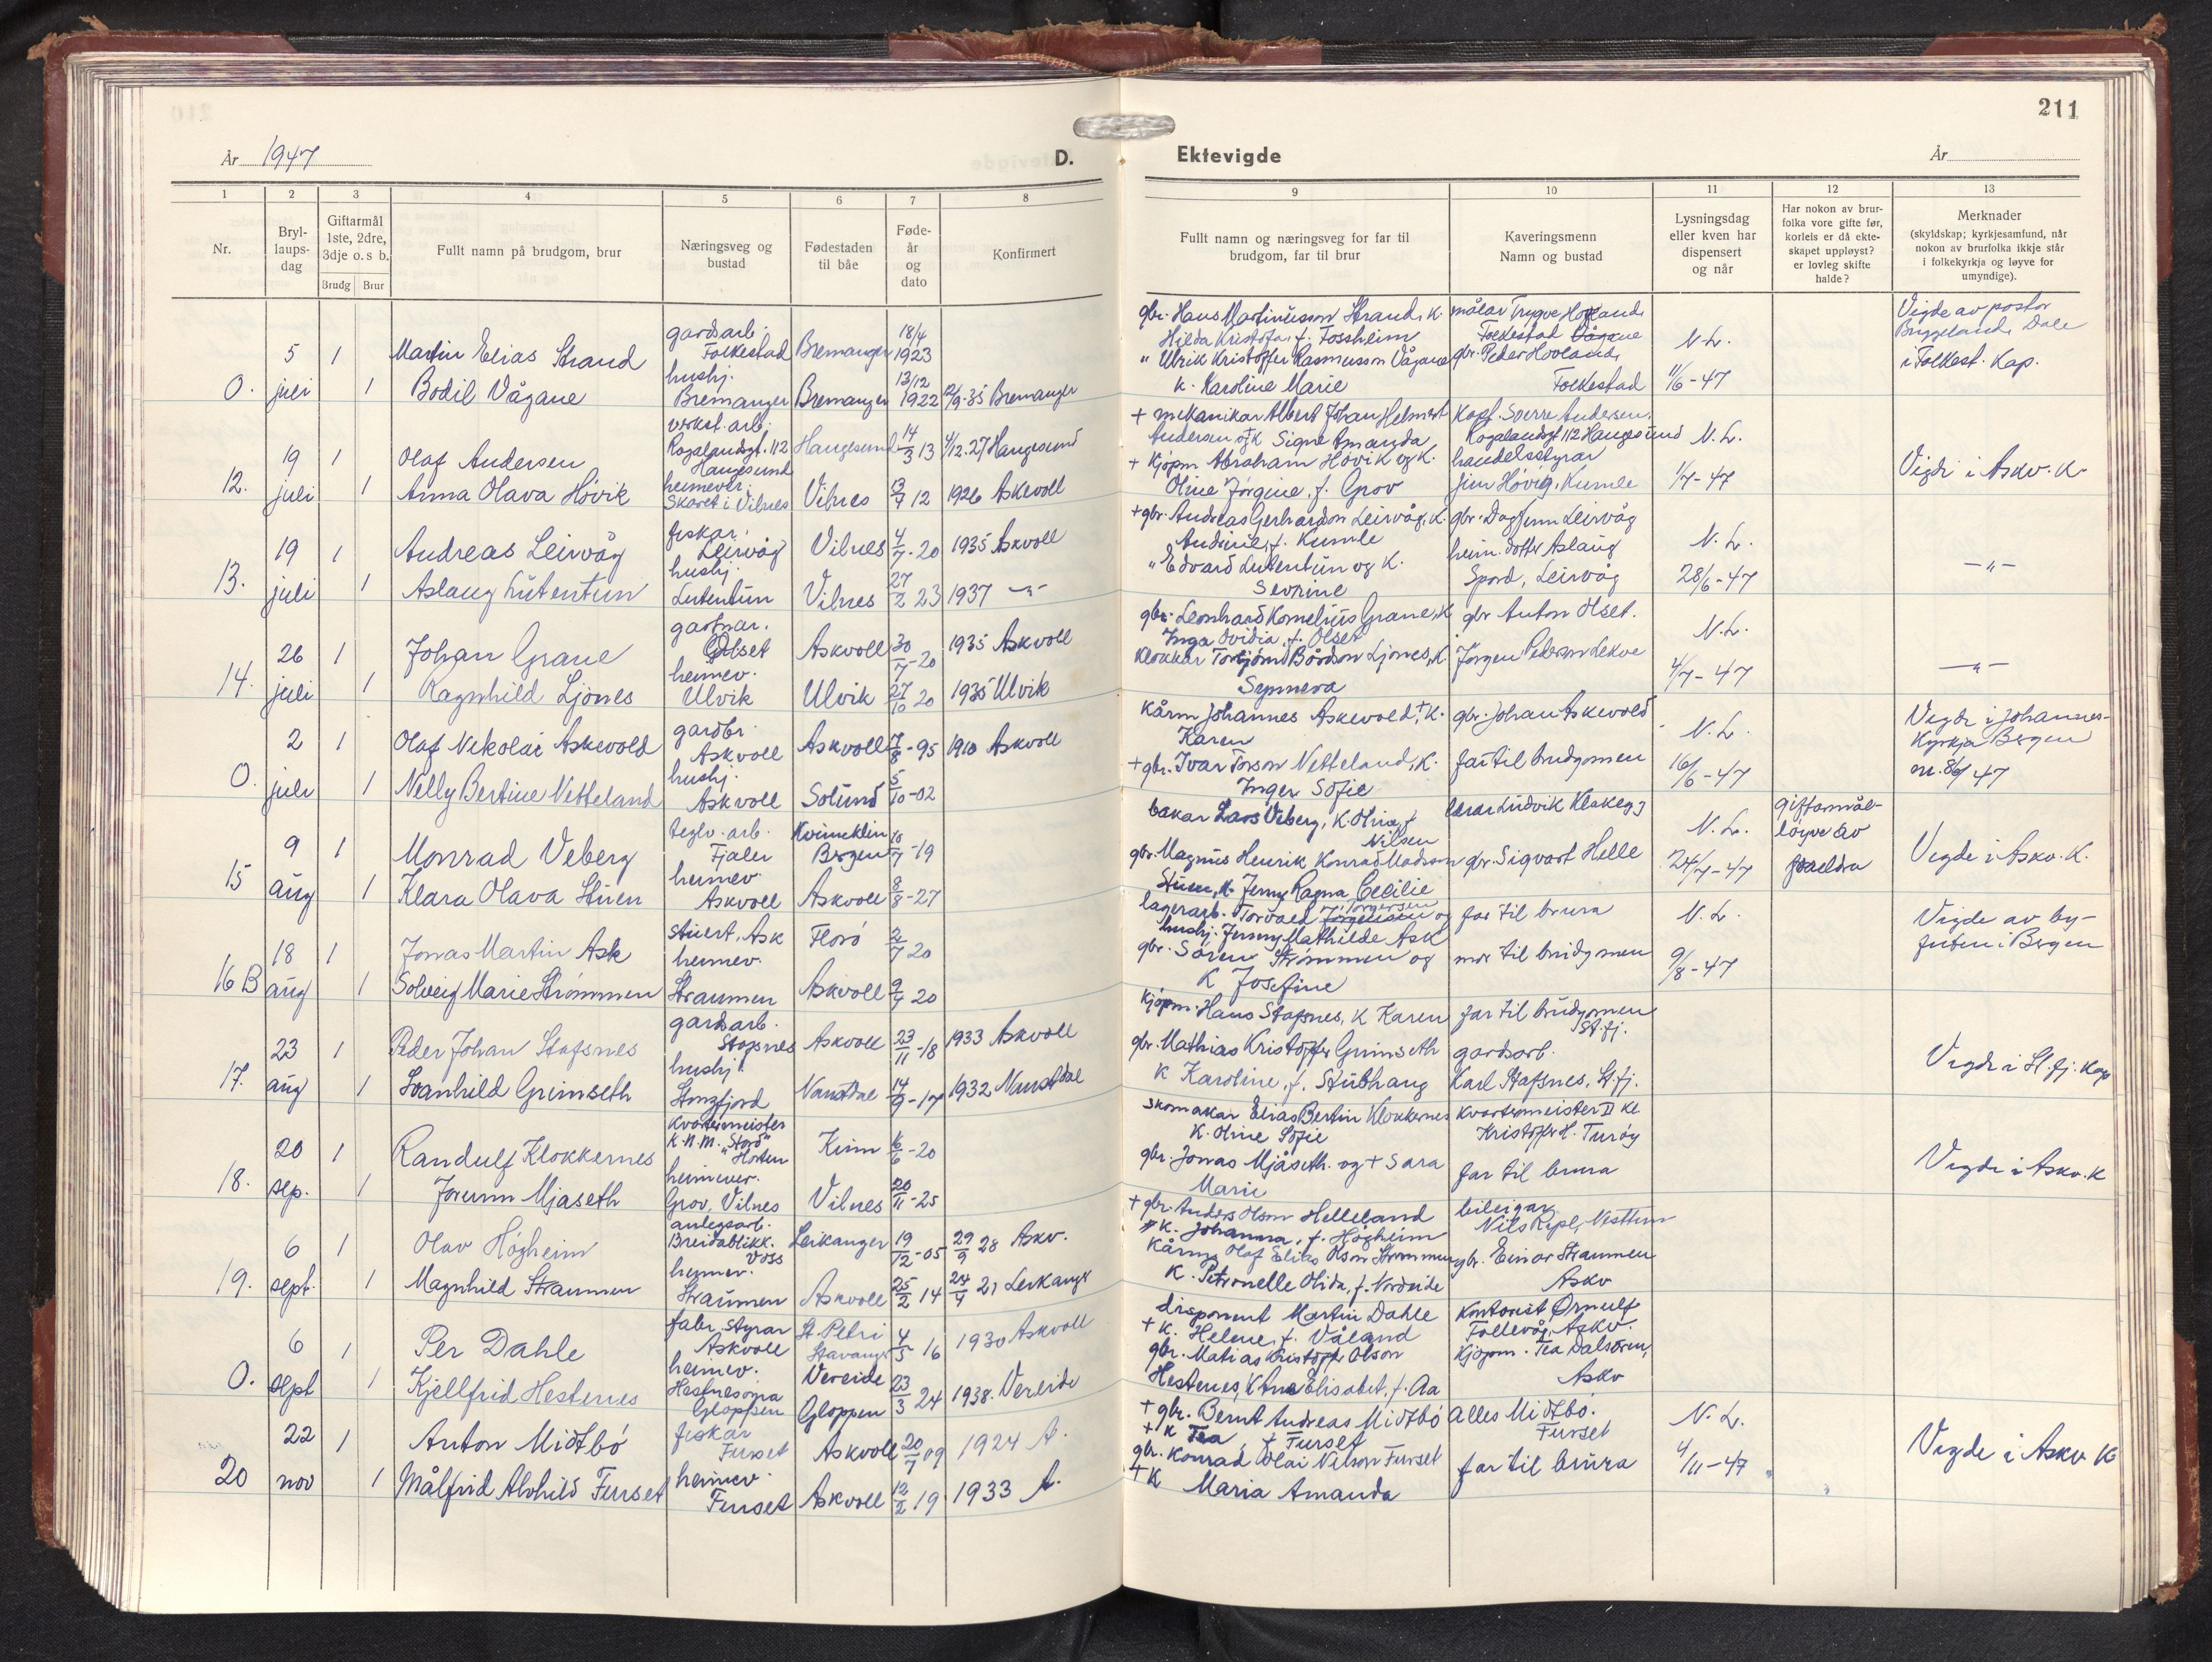 År 1947
D.
Ektevigde
År
211
1 2 3 4 5 6 7 8
9 10 11 12 13
Nr.
Bryl-
laups-
dag
Giftarmål
1ste, 2dre,
3dje o. s b.
Brudg Brur
Fullt namn på brudgom, brur
Næringsveg og
bustad
Fødestaden
til båe
Føde-
år
og
dato
Konfirmert
Fullt namn og næringsveg for far til
brudgom, far til brur
Kaveringsmenn
Namn og bustad
Lysningsdag
eller kven har
dispensert
og når
Har nokon av brur-
folka vore gifte før,
korleis er då ekte-
skapet uppløyst?
er lovleg skifte
halde?
Merknader
(skyldskap; kyrkjesamfund, når
nokon av brurfolka ikkje står
i folkekyrkja og løyve for
umyndige).
5 1 Martin Elias Strand gardsarb. Folkestad Bremanger 18/4 1923
O. juli 1 Bodil Vågane hushj. Bremanger Bremanger 13/12 1922 12/9-35 Bremanger
gbr. Hans Martinusson Strand, K.
Hilda Kristofa, f. Fossheim
" Ulrik Kristoffer Rasmusson Vågane
K. Karoline Marie
målar Trygve Hovland
Folkestad Vågane
gbr. Peder Hovland,
Folkestad
N. L.
11/6-47
Vigde av pastor
Dale
i Folkest. Kap.
19 1 Olaf Andersen verkst. arb. Rogalandsgt. 112 Haugesund Haugesund 14/3 13 4/12.27 Haugesund
12. juli 1 Anna Olava Høvik heimever. Skaret i Vilnes Vilnes 13/7 12 1926 Askvoll
+ mekanikar Albert Johan Helmert
Andersen og K Signe Amanda
+ Kjøpm Abraham Høvik og K.
Oline Jørgine, f. Grov
Kapt. Sverre Andersen,
Rogalandsgt 112 Haugesund
handelsstyrar
Høvig, Kumle
N. L.
1/7-47
Vigde i Askv. K.
19 1 Andreas Leirvåg fiskar. Leirvåg Vilnes 4/7-20 1935 Askvoll
13. juli 1 Aslaug Lutentun hushj. Lutentun Vilnes 27/2 23 1937 -"-
+ gbr. Andreas Gerhardson Leirvåg, K.
Andrine, f. Kumle
" Edvard Lutentun og K.
Sevrine
gbr. Dagfinn Leirvåg
heim. dotter Aslaug
Spord, Leirvåg
N. L.
28/6-47
-"-
26 1 Johan Grane gartnar. Olset Askvoll 30/7-20 1935 Askvoll
14. juli 1 Ragnhild Ljones heimev. Ulvik Ulvik 27/10 20 1935 Ulvik
gbr. Leonhard Kornelius Grane, K
Inga Ovidia, f. Olset
Klokkar Torbjørn Bårdson Ljones, K
Synneva
gbr Anton Olset.
Jørgen Pederson Lekve
N. L.
4/7-47
-"-
2 1 Olaf Nikolai Askevold gardbr. Askvoll Askvoll 7/8-95 1910 Askvoll
O. juli 1 Nelly Bertine Netteland hushj. Askvoll Solund 5/10-02
Kårm Johannes Askevold, + K.
Karen
+ gbr. Ivar Torson Netteland, K.
Inger Sofie
gbr. Johan Askevold
far til brudgomen
N. L.
16/6-47
Vigde i Johannes-
Kyrkja Bergen
nr. 86/47
9 1 Monrad Veberg teglv. arb. Fjaler Bergen 10/7-19
15 aug 1 Klara Olava Stuen heimev. Askvoll Askvoll 8/8-27
bakar Lars Veberg, K. Oline, f
Nilsen
gbr. Magnus Henrik Konrad Madsson
Stuen, K. Jenny Ragna Cecilie
lærar Ludvik Klakegg
gbr. Sigvart Helle
N. L.
24/7-47
giftarmål-
løyve av
foreldra
Vigde i Askv. K.
18 1 Jonas Martin Ask stuert, Ask Florø 2/7 20
16 B aug 1 Solveig Marie Strømmen heimev. Straumen Askvoll 9/4 20
lagerarb. Torvald Jørgensen Torgersen og
hushj. Jenny Mathilde Ask
gbr. Søren Strømmen og
K Josefine
far til brura
mor til brudgomen
N. L.
9/8-47
Vigde av by-
futen i Bergen
23 1 Peder Johan Stafsnes gardsarb. Stafsnes Askvoll 23/11-18 1933 Askvoll
17. aug 1 Svanhild Grimseth hushj. Stongfjord Naustdal 14/9-17 1932 Naustdal
Kjøpm. Hans Stafsnes, K Karen
gbr. Mathias Kristoffer Grimseth
K Karoline, f. Stubhaug
far til brudgomen
St. fj.
gardsarb.
Karl Stafsnes, St. fj.
Vigde i St. fj. Kap
20 1 Randulf Klokkernes Kvartermeister K.N.M. "Stord" Horten Kinn 6/6-20
18. sep. 1 Jorunn Mjaseth heimever. Grov, Vilnes Vilnes 20/11-25
Skomakar Elias Bertin Klokkernes
K. Oline Sofie
gbr. Jonas Mjåseth. og + Sara
Marie
Kvartermeister II Kl
Kristoffer H. Turøy
far til brura
Vigde i Askv. K
6 1 Olav Høgheim anlegsarb. Breidablikk. Voss Leikanger 19/12-05 29/9 28 Askv.
19. sept. 1 Magnhild Straumen heimev. Straumen Askvoll 25/2 14 24/4 21 Leikanger
+ gbr. Anders Olson Helleland
K. Johanna, f. Høgheim
Kårm. Olaf Elias Olson Strømmen
K. Petronelle Olida, f. Nordeide
bileigar
Nils Rypl, Nesttun
gbr. Einar Straumen
Askv
6 1 Per Dahle fabr. styrar Askvoll St. Petri Stavanger 4/5 16 1930 Askvoll
O. sept 1 Kjellfrid Hestenes heimev. Gloppen Vereide Gloppen 23/3 24 1938. Vereide
disponent Martin Dahle
+ K. Helene, f. Våland
gbr. Matias Kristoffer Olson
Hestenes, K Ane Elisabet, f. Aa
Kontorist Ørnulf
Follevåg, Askv.
Kjøpm. Tea Dalsøren,
Askv
22 1 Anton Midtbø fiskar Furset Askvoll 20/7 09 1924 A.
20 nov 1 Målfrid Alvhild Furset heimev. Furset Askvoll 12/2 19 1933 A.
+ gbr. Bernt Andreas Midtbø
+ K Tea f Furset
gbr. Konrad Olai Nilson Furset
+ K Maria Amanda
Alles Midtbø.
Furset
far til brura
N. L.
4/11-47
Vigde i Askv K